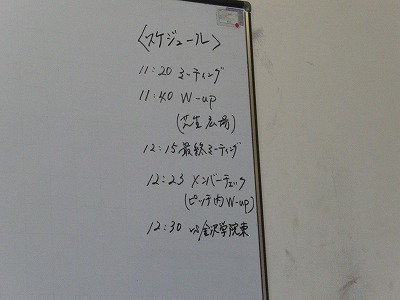 〈スケジュール〉
11:20 ミーティング
11:40 W-up
(芝生広場)
12:15 最終ミーティング
12:23 メンバーチェック
(ピッチ内 W-up)
12:30 vs 金沢学院東